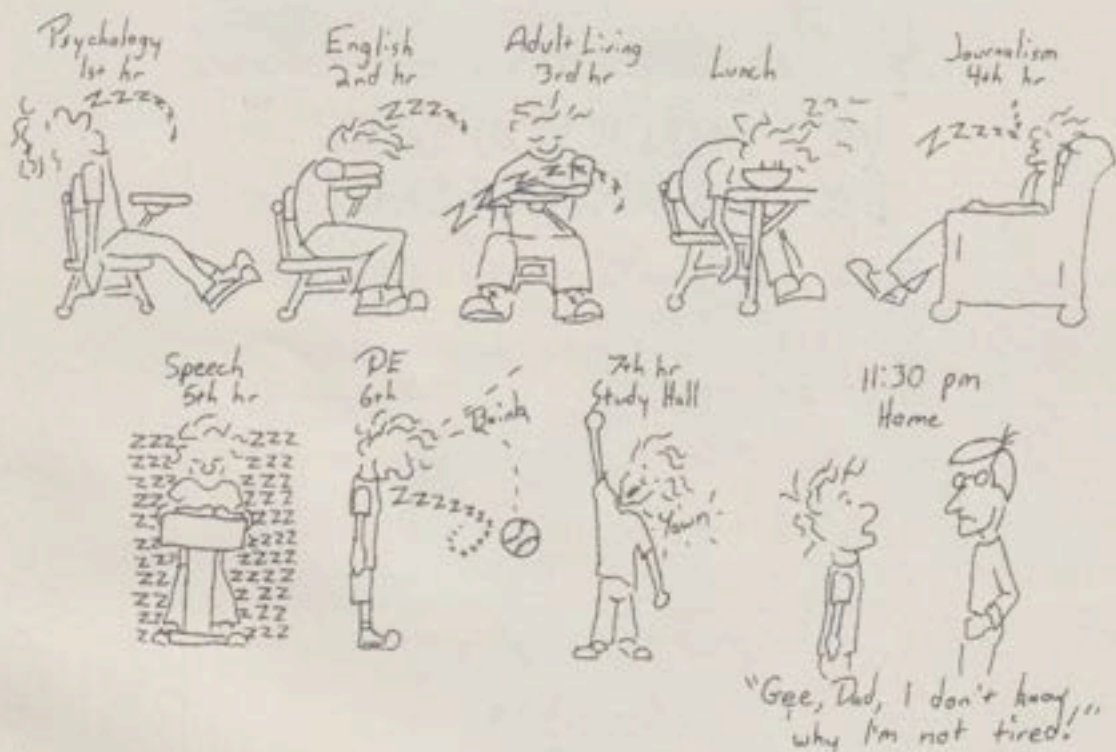 Psychology
1st hr
ZZZZZ
English
2nd hr
ZZZZZ
Adult Living
3rd hr
ZZZZ
Lunch
ZZ
Journalism
4th hr
ZZZZZ
Speech
5th hr
ZZZ ZZZ
ZZZ ZZZ
ZZZ ZZZ
ZZ ZZZ
ZZ ZZZ
ZZ ZZZ
ZZZ ZZZZ
ZZ ZZZZ
ZZ ZZZ
ZZ ZZZ
Z ZZZ
PE
6th
Boink
ZZZZZZZ
7th hr
Study Hall
Yawn
11:30 pm
Home
"Gee, Dad, I don't know
why I'm not tired!"